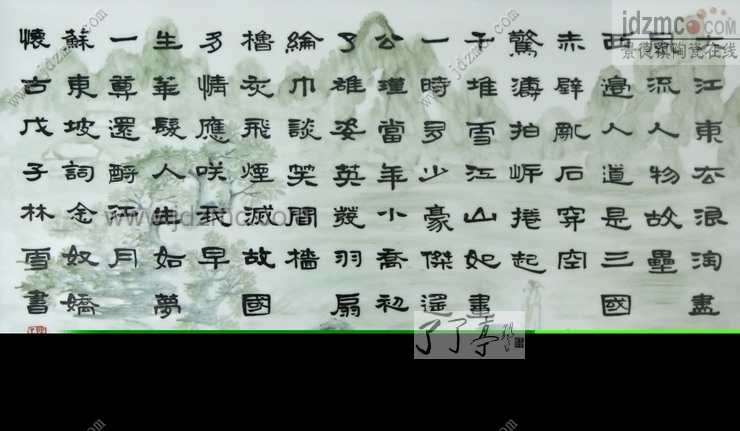 大江東去浪淘盡
風流人物故壘
西邊人道是三國
赤壁亂石穿空
驚濤拍岸捲起
千堆雪江山如畫
一時多少豪傑遙
公瑾當年小喬初
了雄姿英發羽扇
綸巾談笑間檣
櫓灰飛煙滅故國
多情應咲我早
生華髮人生如夢
一尊還酹江月
蘇東坡詞念奴嬌
懷古戊子林雪書
jdzmc.com
景德镇陶瓷在线
www.jdzmc.com
了了亭